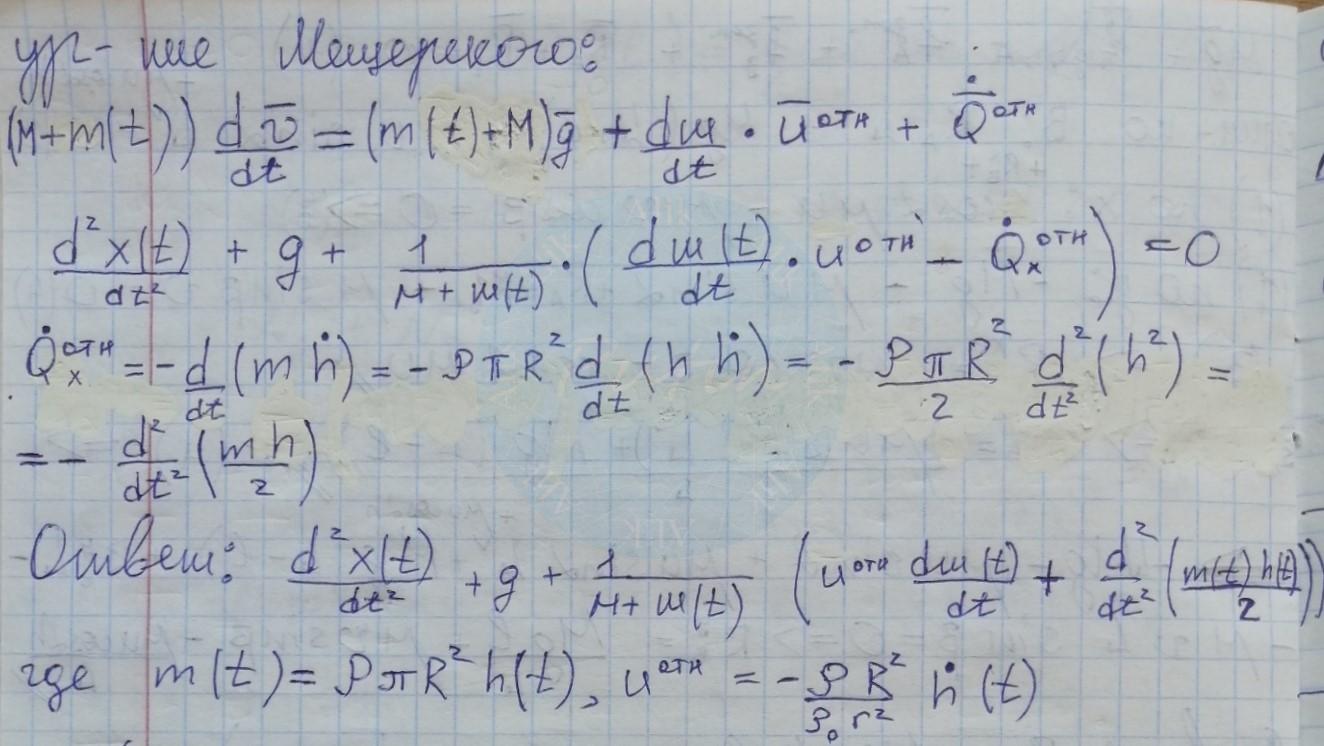 ур-ние Мещерского:
(M+m(t)) dv̅/dt = (m(t)+M)g̅ + dm/dt · u̅ᵒᵗⁿ + Q̅̇ᵒᵗⁿ
d²x(t)/dt² + g + 1/(M+m(t)) · (dm(t)/dt · uᵒᵗⁿ − Q̇ₓᵒᵗⁿ) = 0
Q̇ₓᵒᵗⁿ = − d/dt (m ḣ) = − ρπR² d/dt (h ḣ) = − ρπR²/2 d²/dt² (h²) =
= − d²/dt² (mh/2)
Ответ: d²x(t)/dt² + g + 1/(M+m(t)) (uᵒᵗⁿ dm(t)/dt + d²/dt² (m(t)h(t)/2))
где m(t) = ρπR² h(t), uᵒᵗⁿ = − ρR²/ρ₀r² ḣ(t)